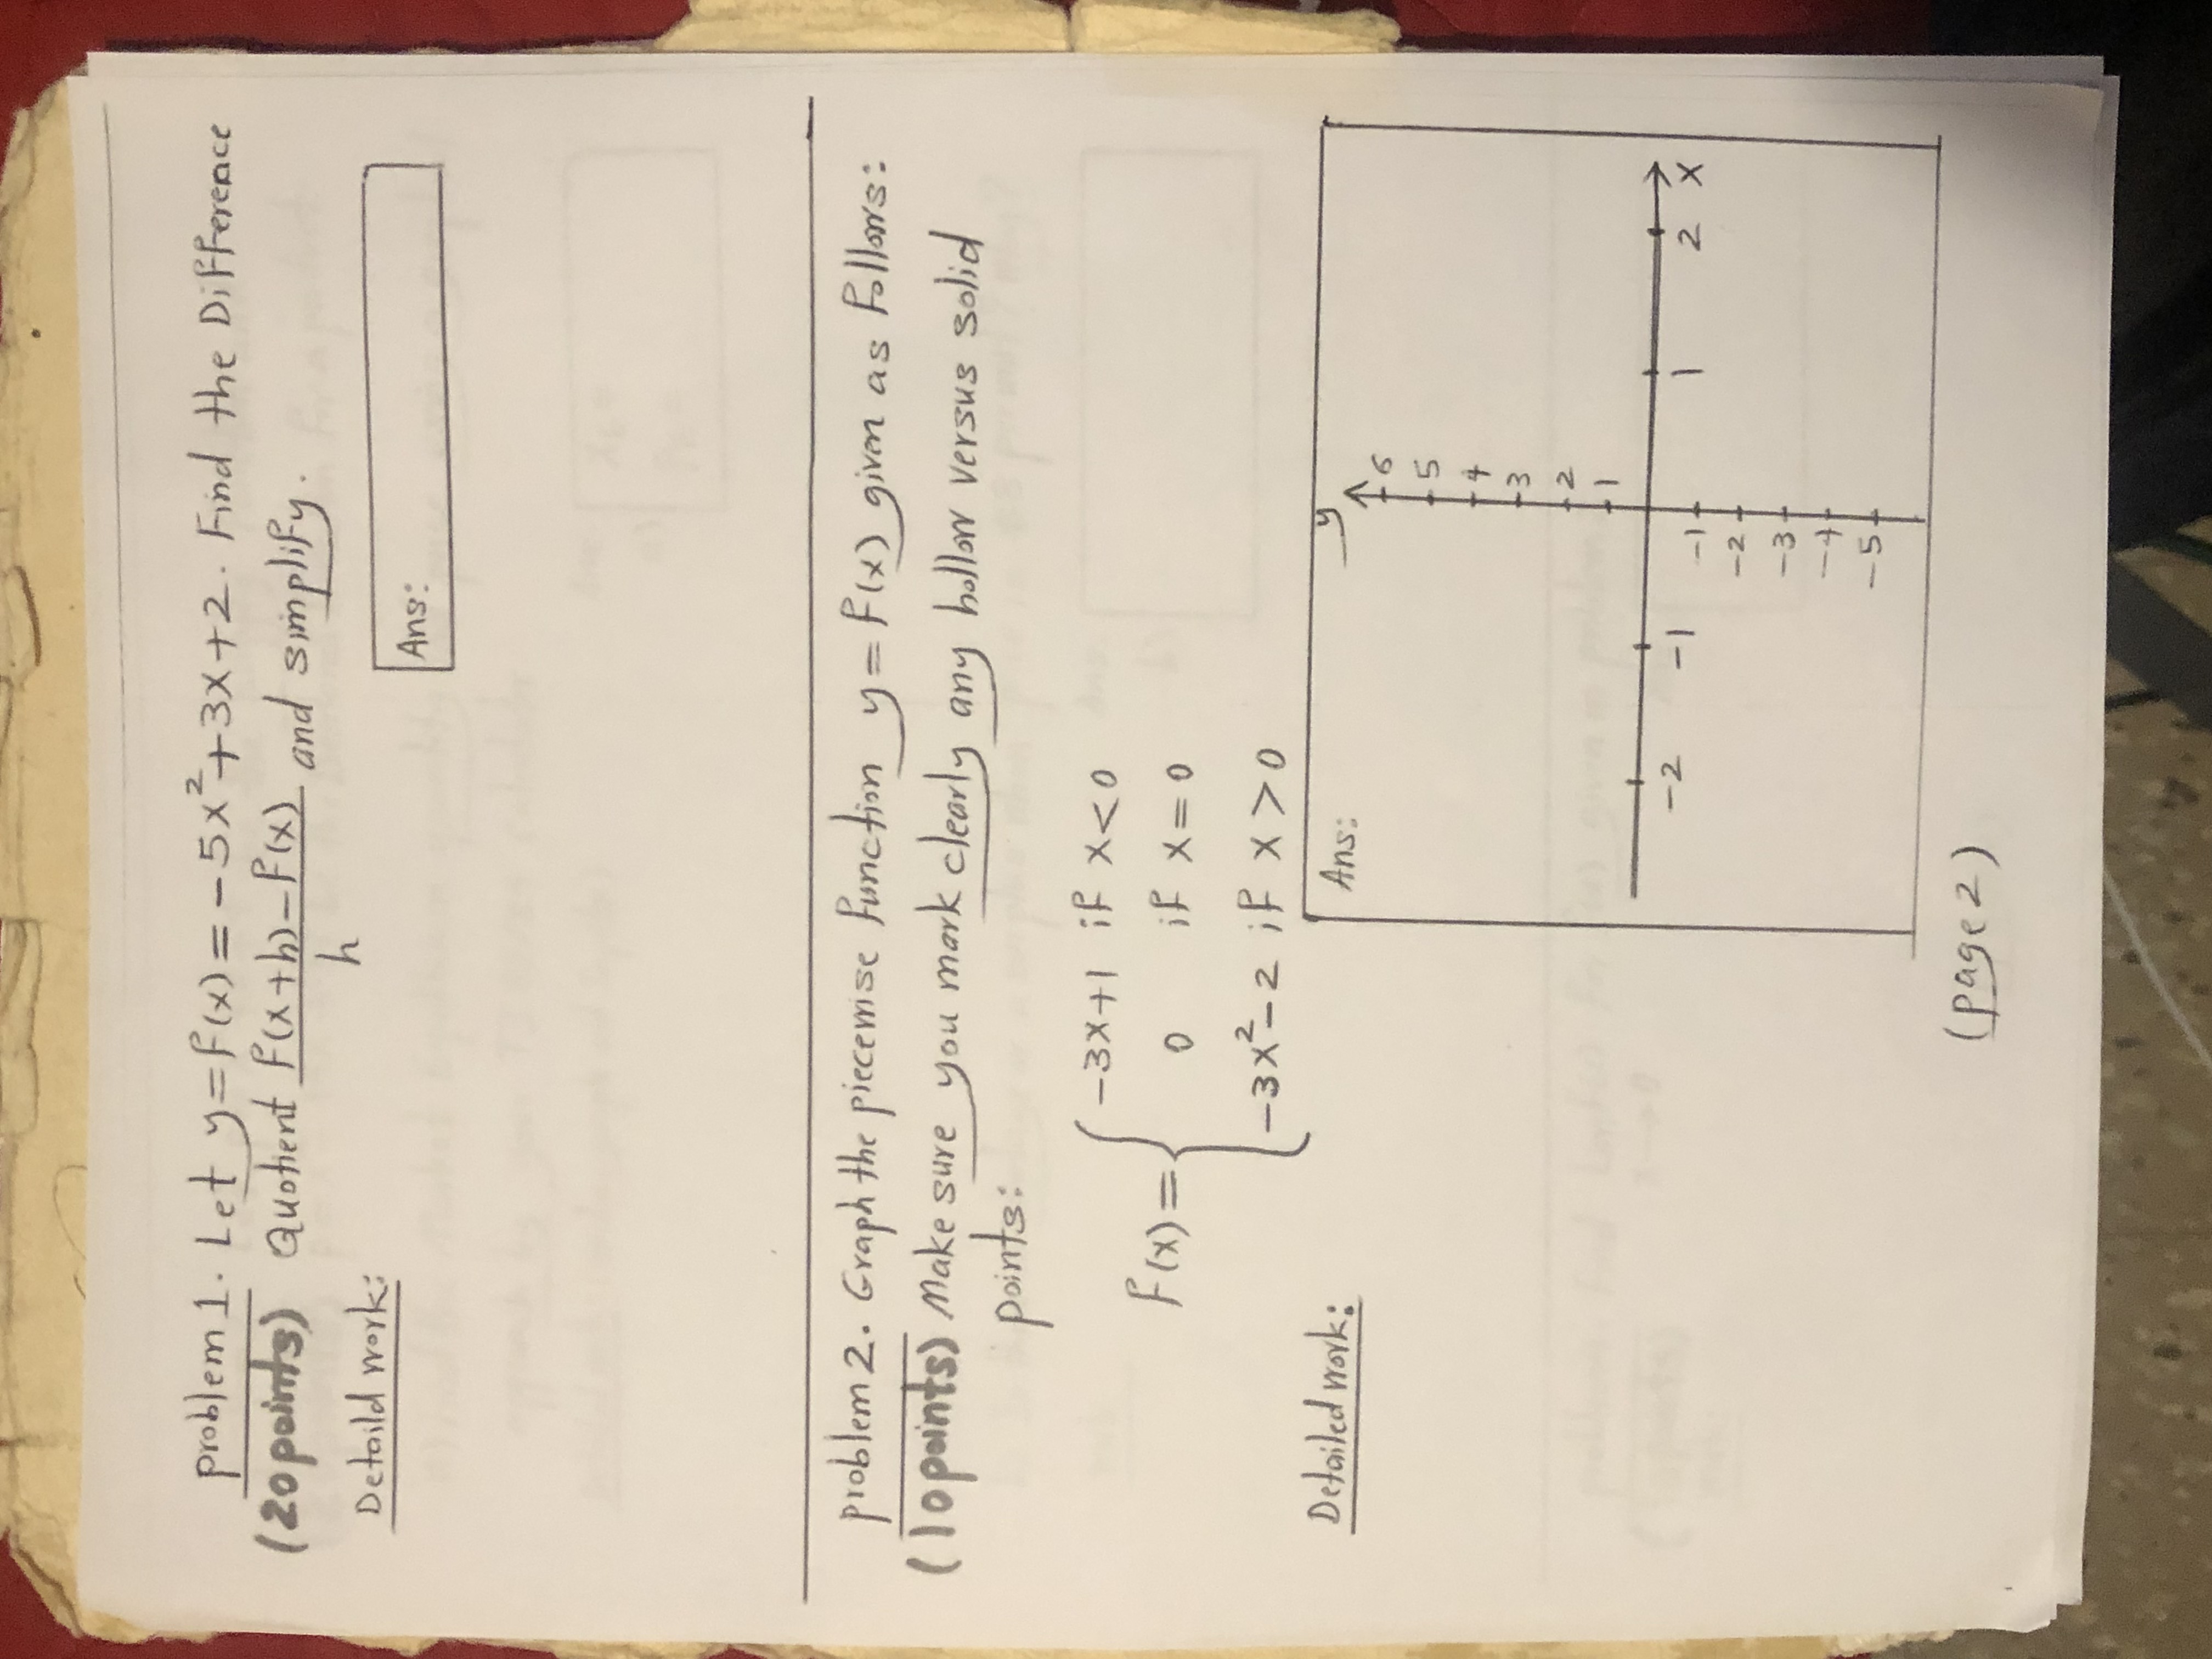 problem 1. Let y=f(x)=-5x²+3x+2. Find the Difference
(20 points) Quotient f(x+h)-f(x)/h and simplify.
Ans:
Detaild work:
problem 2. Graph the piecewise function y=f(x) given as follows:
(10 points) Make sure you mark clearly any hollow versus solid
points:
f(x)={
-3x+1 if x<0
0 if x=0
-3x²-2 if x>0
Detailed work:
Ans:
y
6
5
4
3
2
1
-2 -1 1 2 x
-1
-2
-3
-4
-5
(page 2)